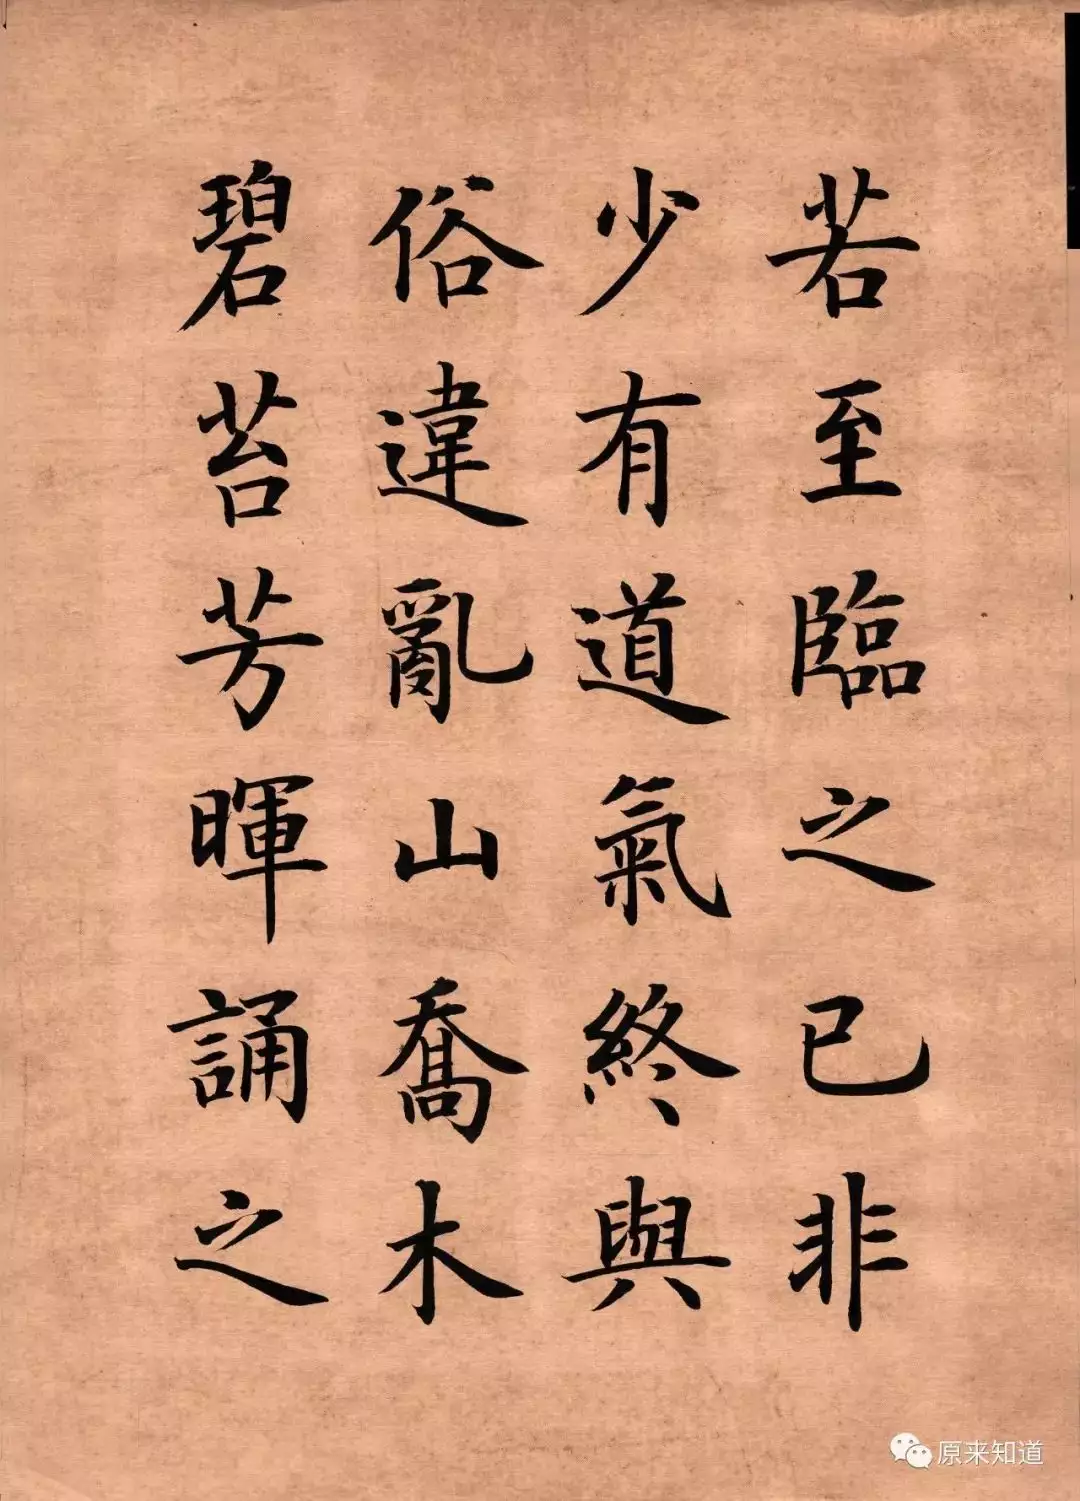 若至臨之已非
少有道氣終與
俗違亂山喬木
碧苔芳暉誦之
原来知道